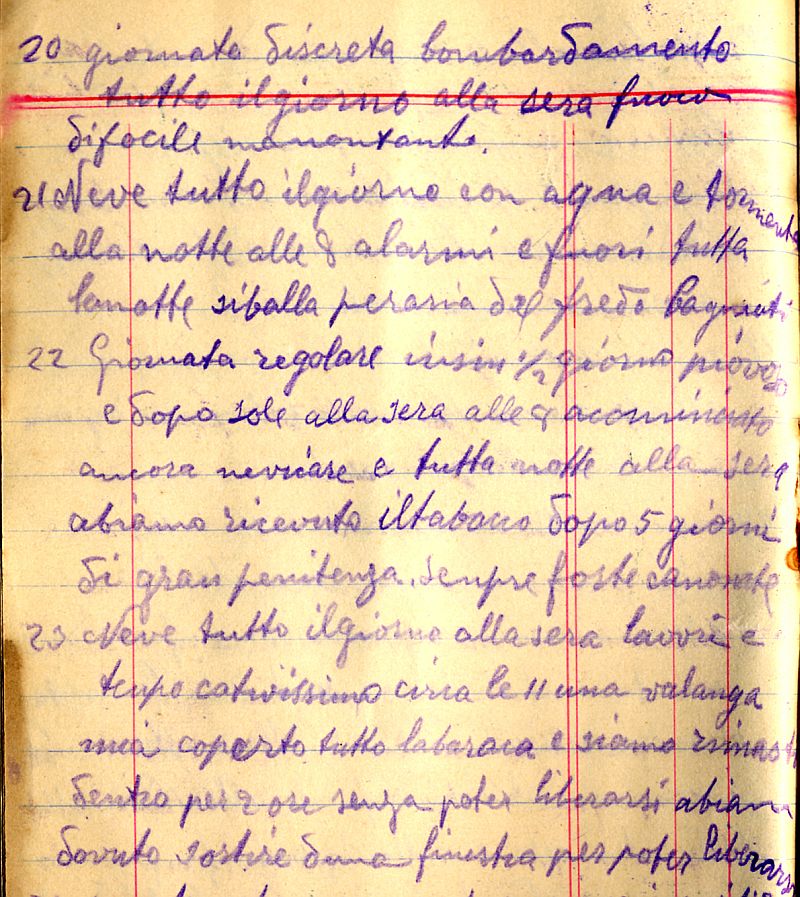 20 giornata discreta bombardamento
tutto ilgiorno alla sera fuoco
dificile
21 Neve tutto ilgiorno con aqua e tormenta
alla notte alle 8 alarmi e fuori tutta
lanotte siballa peraria del fredo bagniati
22 Giornata regolare insin 1/2 giorno piovoso
e dopo sole alla sera alle 8 acominciato
ancora nevicare e tutta notte alla sera
abiamo ricevuto iltabacco dopo 5 giorni
di gran penitenza. senpre forte canonate
23 Neve tutto ilgiorno alla sera lavori e
tenpo cativissimo circa le 11 una valanga
mia coperto tutto labaraca e siamo rimasti
dentro per 2 ore senza poter liberarsi abiam
dovuto sortire duna finestra per poter liberarsi